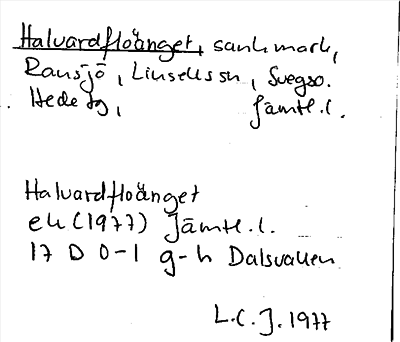 Halvardfloänget, sankmark,
Ransjö, Linsells sn, Svegs o.
Hede tg, Jämtl. l.
Halvardfloänget
ek (1977) Jämtl. l.
17 D 0-1 g-h Dalsvallen
L.C.J. 1977